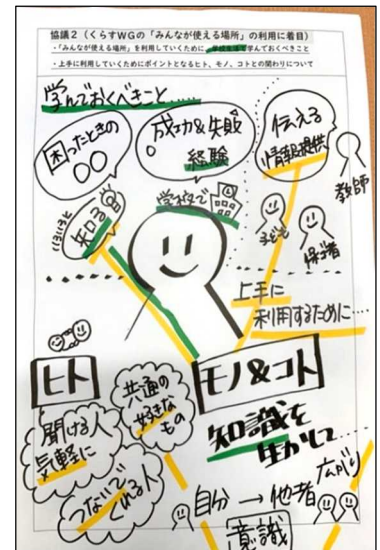 協議2(くらすWGの「みんなが使える場所」の利用に着目)
・「みんなが使える場所」を利用していくために、学校生活で学んでおくべきこと
・上手に利用していくためにポイントとなるヒト、モノ、コトとの関わりについて
学んでおくべきこと……
困ったときの
○○
成功&失敗
経験
伝える
情報提供
教師
いろいろと
知る
学校で
子ども
保護者
上手に
利用するために…
ヒト
共通の
好きな
もの
モノ&コト
聞ける人
気軽に
知識を
生かして……
つないで
くれる人
自分 → 他者
広がり
意識